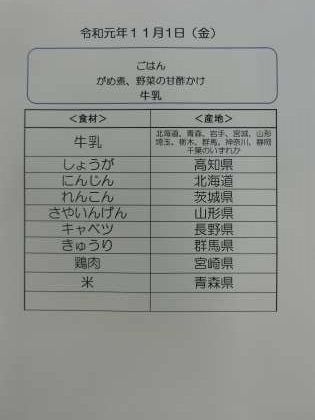 令和元年11月1日（金）
ごはん
がめ煮、野菜の甘酢かけ
牛乳
＜食材＞ ＜産地＞
牛乳 北海道、青森、岩手、宮城、山形
埼玉、栃木、群馬、神奈川、静岡
千葉のいずれか
しょうが 高知県
にんじん 北海道
れんこん 茨城県
さやいんげん 山形県
キャベツ 長野県
きゅうり 群馬県
鶏肉 宮崎県
米 青森県